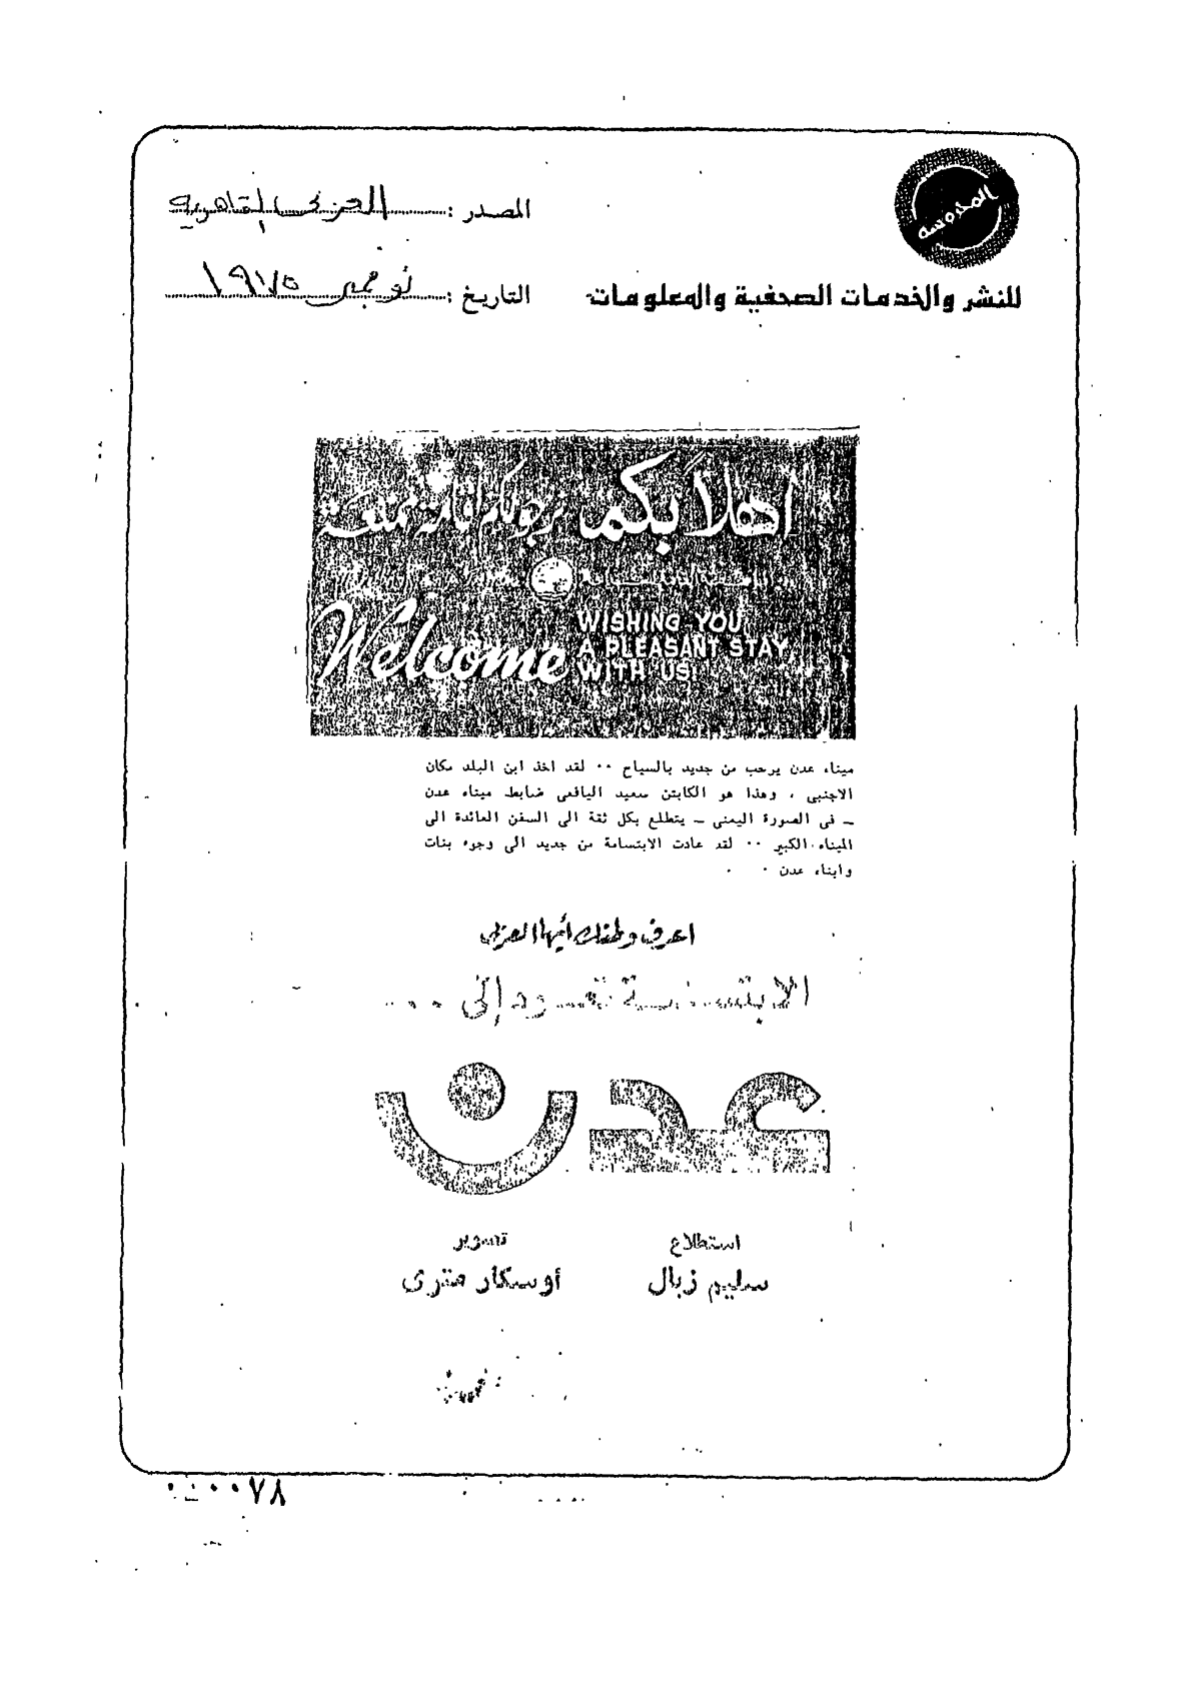 المحروسة
المصدر : العربي القاهرية
للنشر والخدمات الصحفية والمعلومات
التاريخ : نوفمبر ١٩٧٥
اهلاً بكم نرجو لكم اقامة ممتعة
Welcome
WISHING YOU
A PLEASANT STAY
WITH US!
ميناء عدن يرحب من جديد بالسياح ٠٠ لقد اخذ ابن البلد مكان
الاجنبى ، وهذا هو الكابتن سعيد اليافعى ضابط ميناء عدن
ــ فى الصورة اليمنى ــ يتطلع بكل ثقة الى السفن العائدة الى
الميناء الكبير ٠٠ لقد عادت الابتسامة من جديد الى وجوه بنات
وابناء عدن ٠
اعرف وطنك أيها العربى
الابتسامة تعود إلى ...
عدن
استطلاع
سليم زبال
تصوير
أوسكار مترى
٧٨